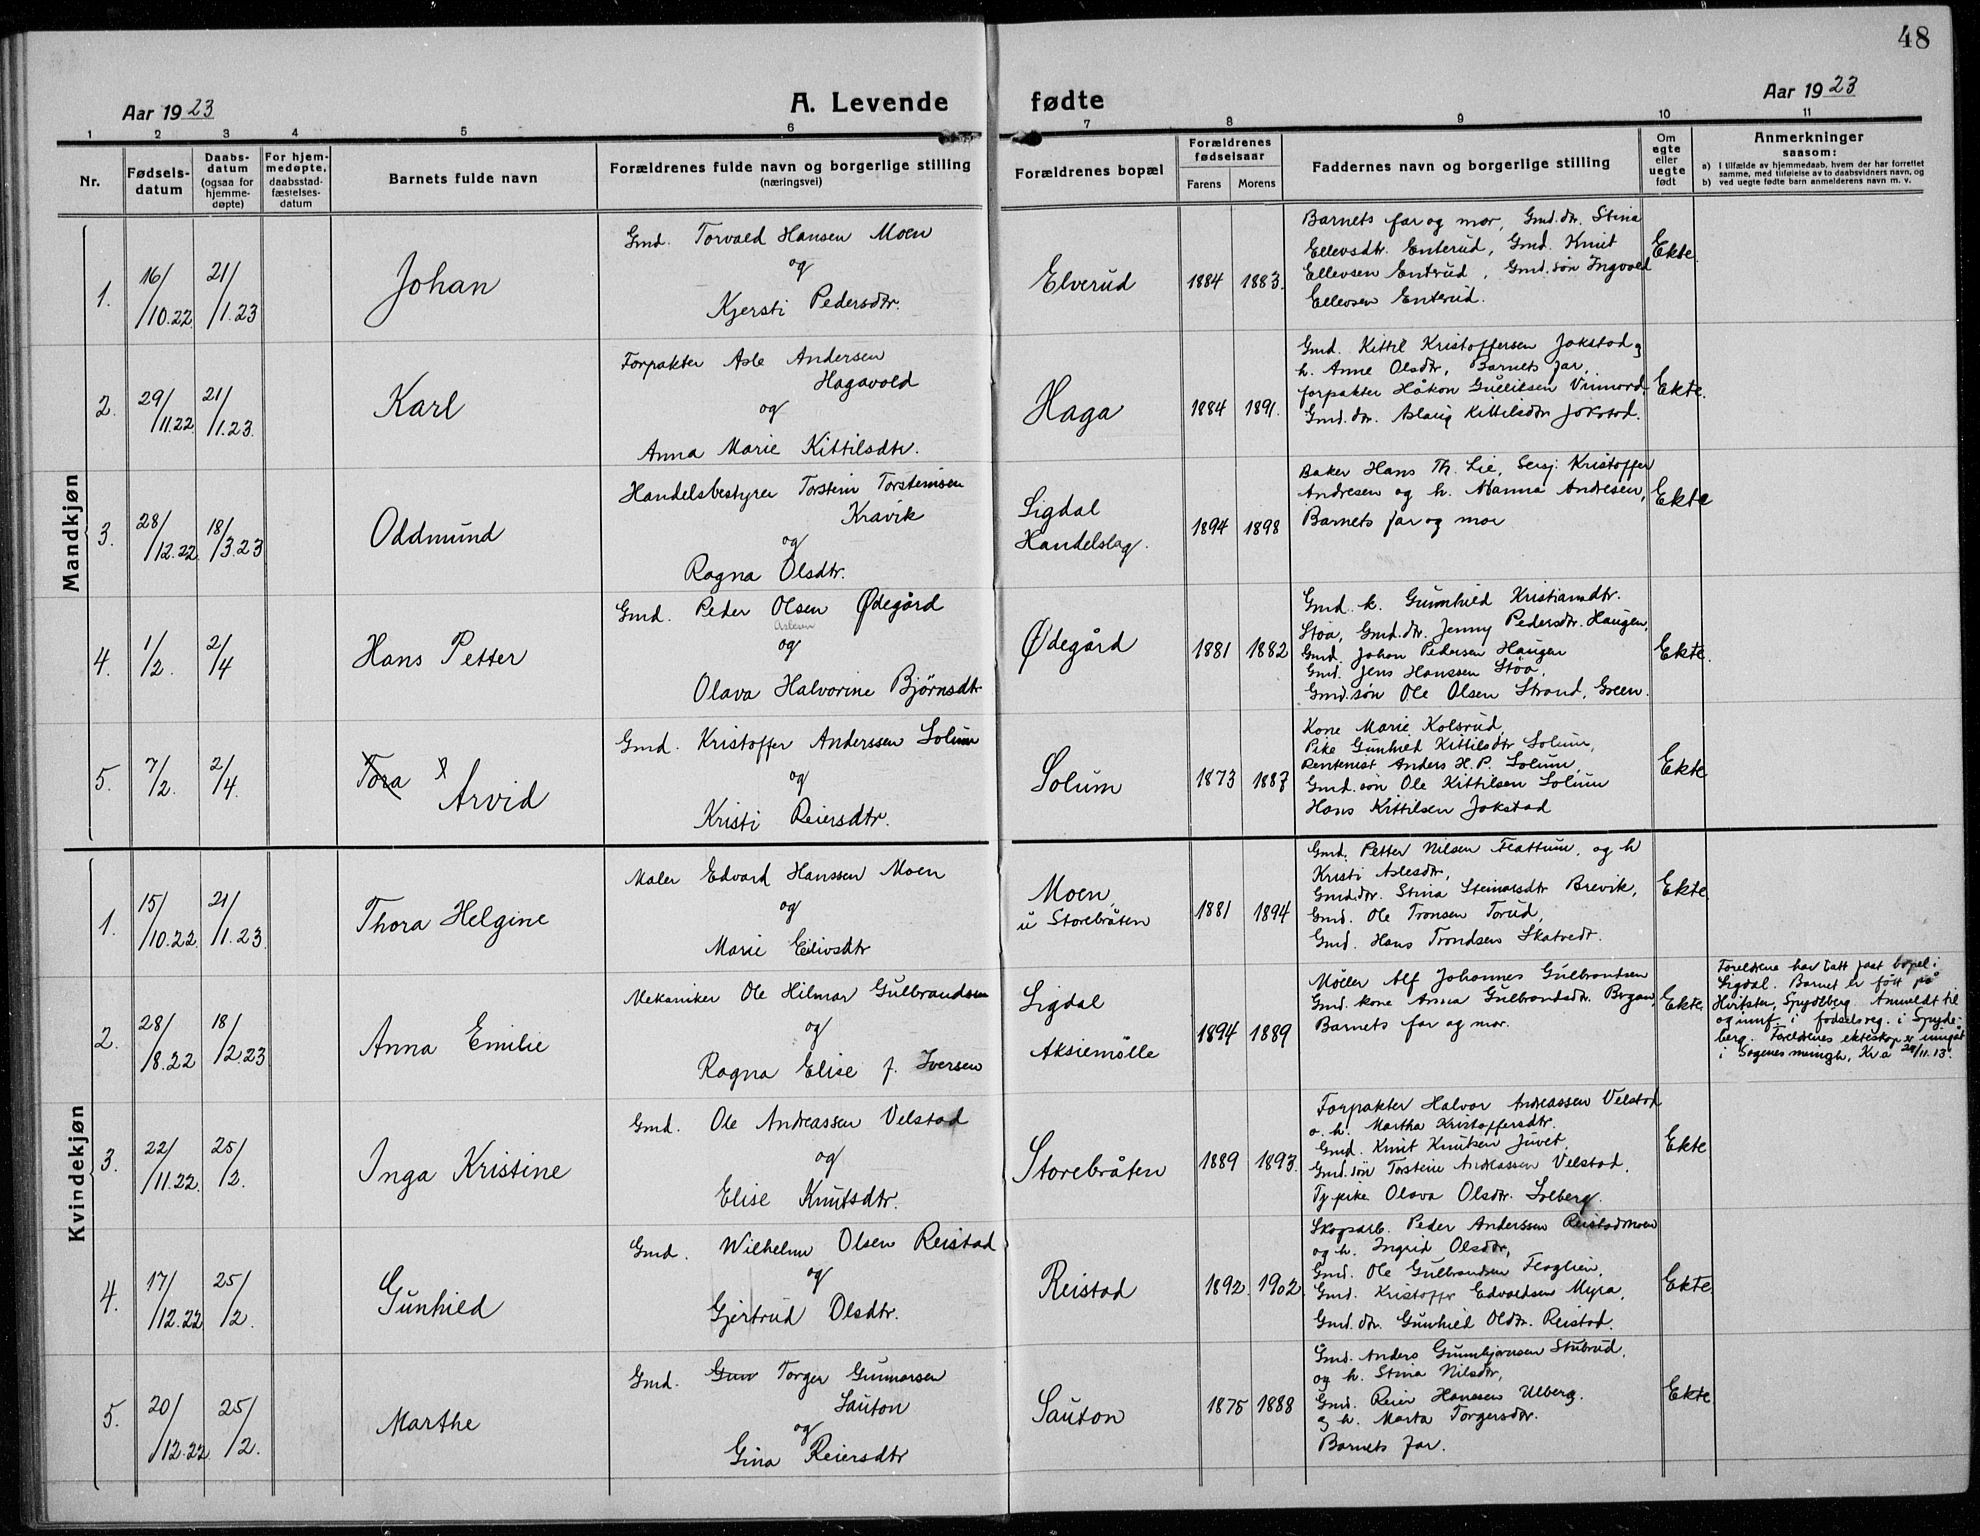 48
Aar 1923
A. Levende fødte
Aar 1923
1 2 3 4 5 6 7 8 9 10 11
Nr.
Fødsels-
datum
Daabs-
datum
(ogsaa for
hjemme-
døpte)
For hjem-
medøpte,
daabsstad-
fæstelses-
datum
Barnets fulde navn
Forældrenes fulde navn og borgerlige stilling
(næringsvei)
Forældrenes bopæl
Forældrenes
fødselsaar
Farens Morens
Faddernes navn og borgerlige stilling
Om
egte
eller
uegte
født
Anmerkninger
saasom:
a) I tilfælde av hjemmedaab, hvem der har forrettet
samme, med tilføielse av to daabsvidners navn, og
b) ved uegte fødte barn anmelderens navn m. v.
Mandkjøn
1.
16/10.22
21/1.23
Johan
Gmd. Torvald Hansen Moen
og
Kjersti Pedersdtr.
Elverud
1884 1883.
Barnets far og mor, Gmd. dtr. Stina
Ellevsdtr. Enterud, Gmd. Knut
Ellevsen Enterud, Gmd. søn Ingvald
Ellevsen Enterud.
Ekte.
2.
29/11.22
21/1.23.
Karl
Forpakter Asle Andersen
Hagavold
og
Anna Marie Kittilsdtr.
Haga
1884 1891.
Gmd. Kittil Kristoffersen Jokstad og
h. Anne Olsdtr, Barnets far,
forpakter Håkon Gulliksen
Gmd. dtr. Aslaug Kittilsdtr Jokstad.
Ekte.
3.
28/12.22.
18/3.23
Oddmund
Handelsbestyrer Torstein Torsteinsen
Kravik
og
Ragna Olsdtr.
Sigdal
Handelslag.
1894 1898
Baker Hans Th. Lie, Sersj. Kristoffer
Andresen og h. Manna Andresen,
Barnets far og mor
Ekte
4.
1/2.
2/4
Hans Petter
Gmd. Peder Olsen Ødegård
Aslesen
og
Olava Halvorine Bjørnsdtr
Ødegård
1881 1882
Gmd. k. Gunnhild Kristiansdtr.
Støa, Gmd. dtr. Jenny Pedersdtr. Haugen,
Gmd. Johan Pedersen Haugen
Gmd. Jens Hanssen Støa,
Gmd. søn Ole Olsen Strand, Green.
Ekte.
5.
7/2.
2/4.
Tora Arvid
Gmd. Kristoffer Anderssen Solum
og
Kristi Reiersdtr.
Solum
1873 1887
Kone Marie Kolsrud,
Pike Gunhild Kittilsdtr Solum,
Rentenist Anders H. P. Solum,
Gmd. søn Ole Kittilsen Solum
Hans Kittilsen Jokstad
Ekte
Kvindekjøn
1.
15/10.22
21/1.23.
Thora Helgine
Maler Edvard Hanssen Moen
og
Marie Eilivsdtr
Moen,
u Storebråten
1881 1894
Gmd. Petter Nilsen Flattum, og h
Kristi Aslesdtr,
Gmd. dtr. Stina Steinarsdtr Brevik,
Gmd. Ole Tronsen Torud,
Gmd. Hans Trondsen Skatvedt.
Ekte
2.
28/8.22
18/2.23
Anna Emilie
Mekaniker Ole Hilmar Gulbrandsen
og
Ragna Elise f. Iversen
Sigdal
Aksiemølle
1894 1889
Møller Alf Johannes Gulbrandsen
Gmd. kone Anna Gulbrandsdtr.
Barnets far og mor.
Ekte.
Foreldrene har tatt fast bopel i
Sigdal. Barnet er født på
Hvitsten, Spydeberg. Anmeldt til
og innf. i fødselsreg. i Spyde-
berg. Foreldrenes ekteskap er inngåt
i Sagenes menigh, Kr.a 29/11.13.
3.
22/11.22.
25/2.
Inga Kristine
Gmd. Ole Andreassen Velstad
og
Elise Knutsdtr.
Storebråten
1889 1893.
Forpakter Halvor Andreassen Velstad
o. h. Martha Kristoffersdtr.
Gmd. Knut Knutsen Juvet,
Gmd. søn Torstein Andreassen Velstad,
Tj. pike Olava Olsdtr. Solberg.
Ekte
4.
17/12.22
25/2.
Gunhild
Gmd. Wilhelm Olsen Reistad
og
Gjertrud Olsdtr.
Reistad
1892. 1902.
Skogsarb. Peder Anderssen Reistadmoen
og h. Ingrid Olsdtr,
Gmd. Ole Gulbrandsen Flaglien,
Gmd. Kristoffr Edvardsen Myra,
Gmd. dtr. Gunhild Oldtr. Reistad.
Ekte.
5.
20/12.22
25/2.
Marthe
Gmd. Gun Torger Gunnarsen
Sauton
og
Gina Reiersdtr
Sauton
1875 1888
Gmd. Anders Gunnbjørnsen Stubrud,
og h. Stina Nilsdtr,
Gmd. Reier Hanssen Ulberg.
og h. Marta Torgersdtr.
Barnets far.
Ekte